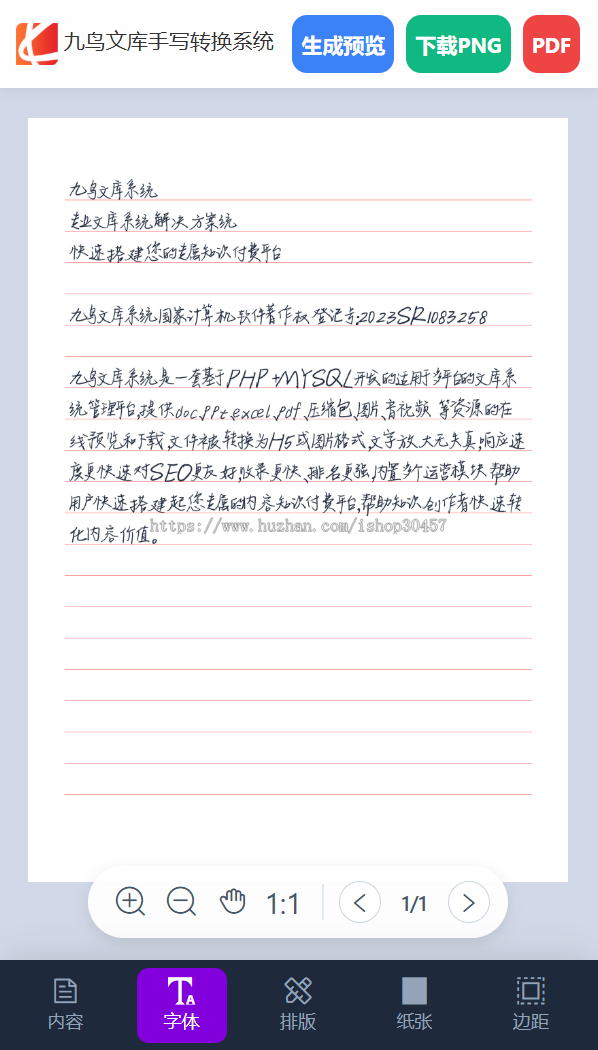 九鸟文库手写转换系统
生成预览
下载PNG
PDF
九鸟文库系统
专业文库系统解决方案统
快速搭建您的专属知识付费平台
九鸟文库系统国家计算机软件著作权登记号:2023SR1083258
九鸟文库系统是一套基于PHP+MYSQL开发的适用于多平台的文库系
统管理平台,提供doc、ppt、excel、pdf、压缩包、图片、音视频等资源的在
线预览和下载,文件被转换为H5或图片格式,文字放大无失真,响应速
度更快速对SEO更友好,收录更快、排名更强,内置多个运营模块帮助
用户快速搭建起您专属的内容知识付费平台,帮助知识创作者快速转
化内容价值。
https://www.huzhan.com/ishop30457
1:1
1/1
内容
字体
排版
纸张
边距